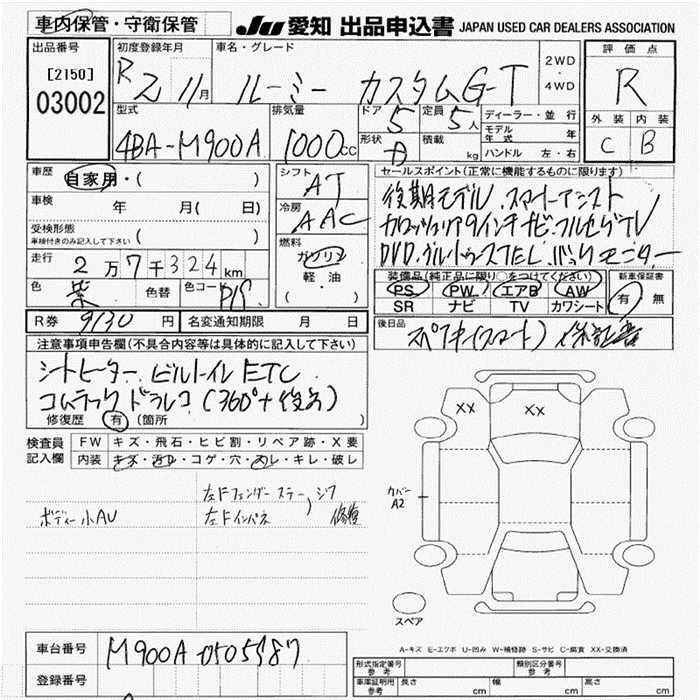 車内保管・守衛保管
JU 愛知 出品申込書 JAPAN USED CAR DEALERS ASSOCIATION
出品番号
[2150]
03002
初度登録年月
R2 11月
車名・グレード
ルーミー カスタムG-T
2WD・4WD
評価点
R
型式
4BA-M900A
排気量
1000cc
ドア
5
定員
5人
形状
積載
kg
ディーラー・並行
モデル年式 年
ハンドル 左・右
外装 内装
C B
車歴
自家用・( )
車検
年 月( 日)
受検形態
車検付きのみ記入して下さい ( )
走行
2万7千324km
色
紫
色替
色コード
シフト
AT
冷房
AAC
燃料
ガソリン
軽・油
( )
セールスポイント(正常に機能するものに限ります)
後期モデル スマートアシスト
カロッツェリア9インチナビ フルセグTV
DVD ブルートゥース TEL バックモニター
装備品(純正品に限り○をつけてください)
PS PW エアB AW
SR ナビ TV カワシート
新車保証書
有・無
R券 9130円
名変通知期限 月 日
後日品
スペアキー(スマート) 保証書
注意事項申告欄(不具合内容等は具体的に記入して下さい)
シートヒーター ビルトイン ETC
コムテック ドラレコ (360°+後方)
修復歴 有 (箇所 )
検査員記入欄
FW キズ・飛石・ヒビ割・リペア跡・X要
内装 キズ・汚れ・コゲ・穴・スレ・キレ・破レ
左Fフェンダーステー
ボディー小AU
左Fインパネ
修復
XX
XX
カバー
A2
スペア
A-キズ E-エクボ U-凹み W-補修跡 S-サビ C-腐食 XX-交換済
車台番号
M900A-0505587
登録番号
形式指定番号 参考
類別区分番号 参考
車庫証明用 参考 長さ cm 幅 cm 高さ cm